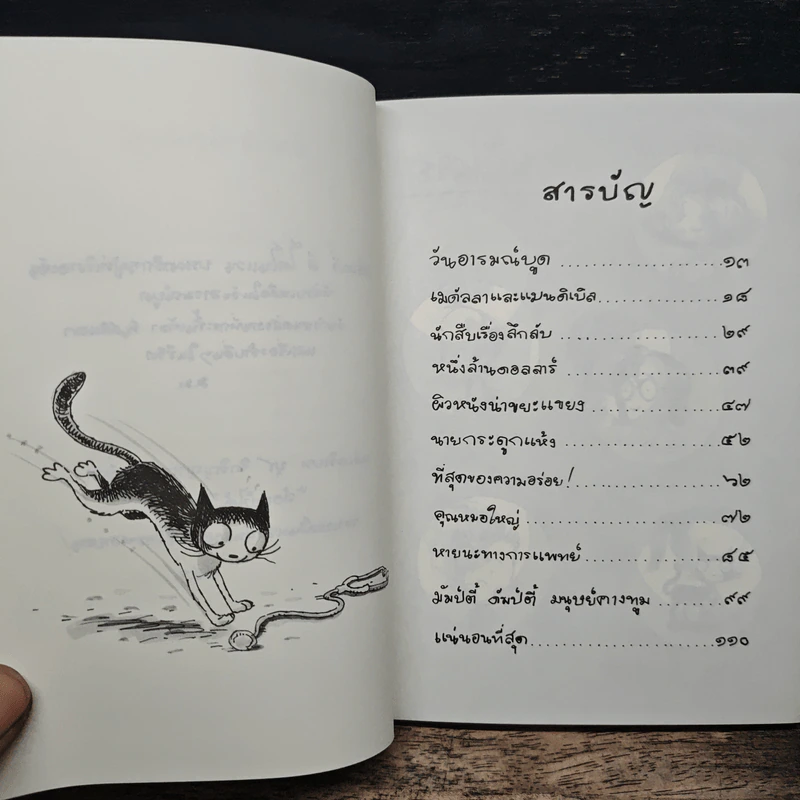 สารบัญ
วันอารมณ์บูด ..................... ๑๓
เมดัลลาและแมนดิเบิล ..................... ๑๘
นักสืบเรื่องลึกลับ ..................... ๒๙
หนึ่งล้านดอลลาร์ ..................... ๓๙
ผิวหนังน่าขยะแขยง ..................... ๔๗
นายกระดูกแห้ง ..................... ๕๒
ที่สุดของความอร่อย! ..................... ๖๒
คุณหมอใหญ่ ..................... ๗๒
หายนะทางการแพทย์ ..................... ๘๕
มัมป์ตี้ ดัมป์ตี้ มนุษย์คางทูม ........ ๙๙
แน่นอนที่สุด ..................... ๑๑๐